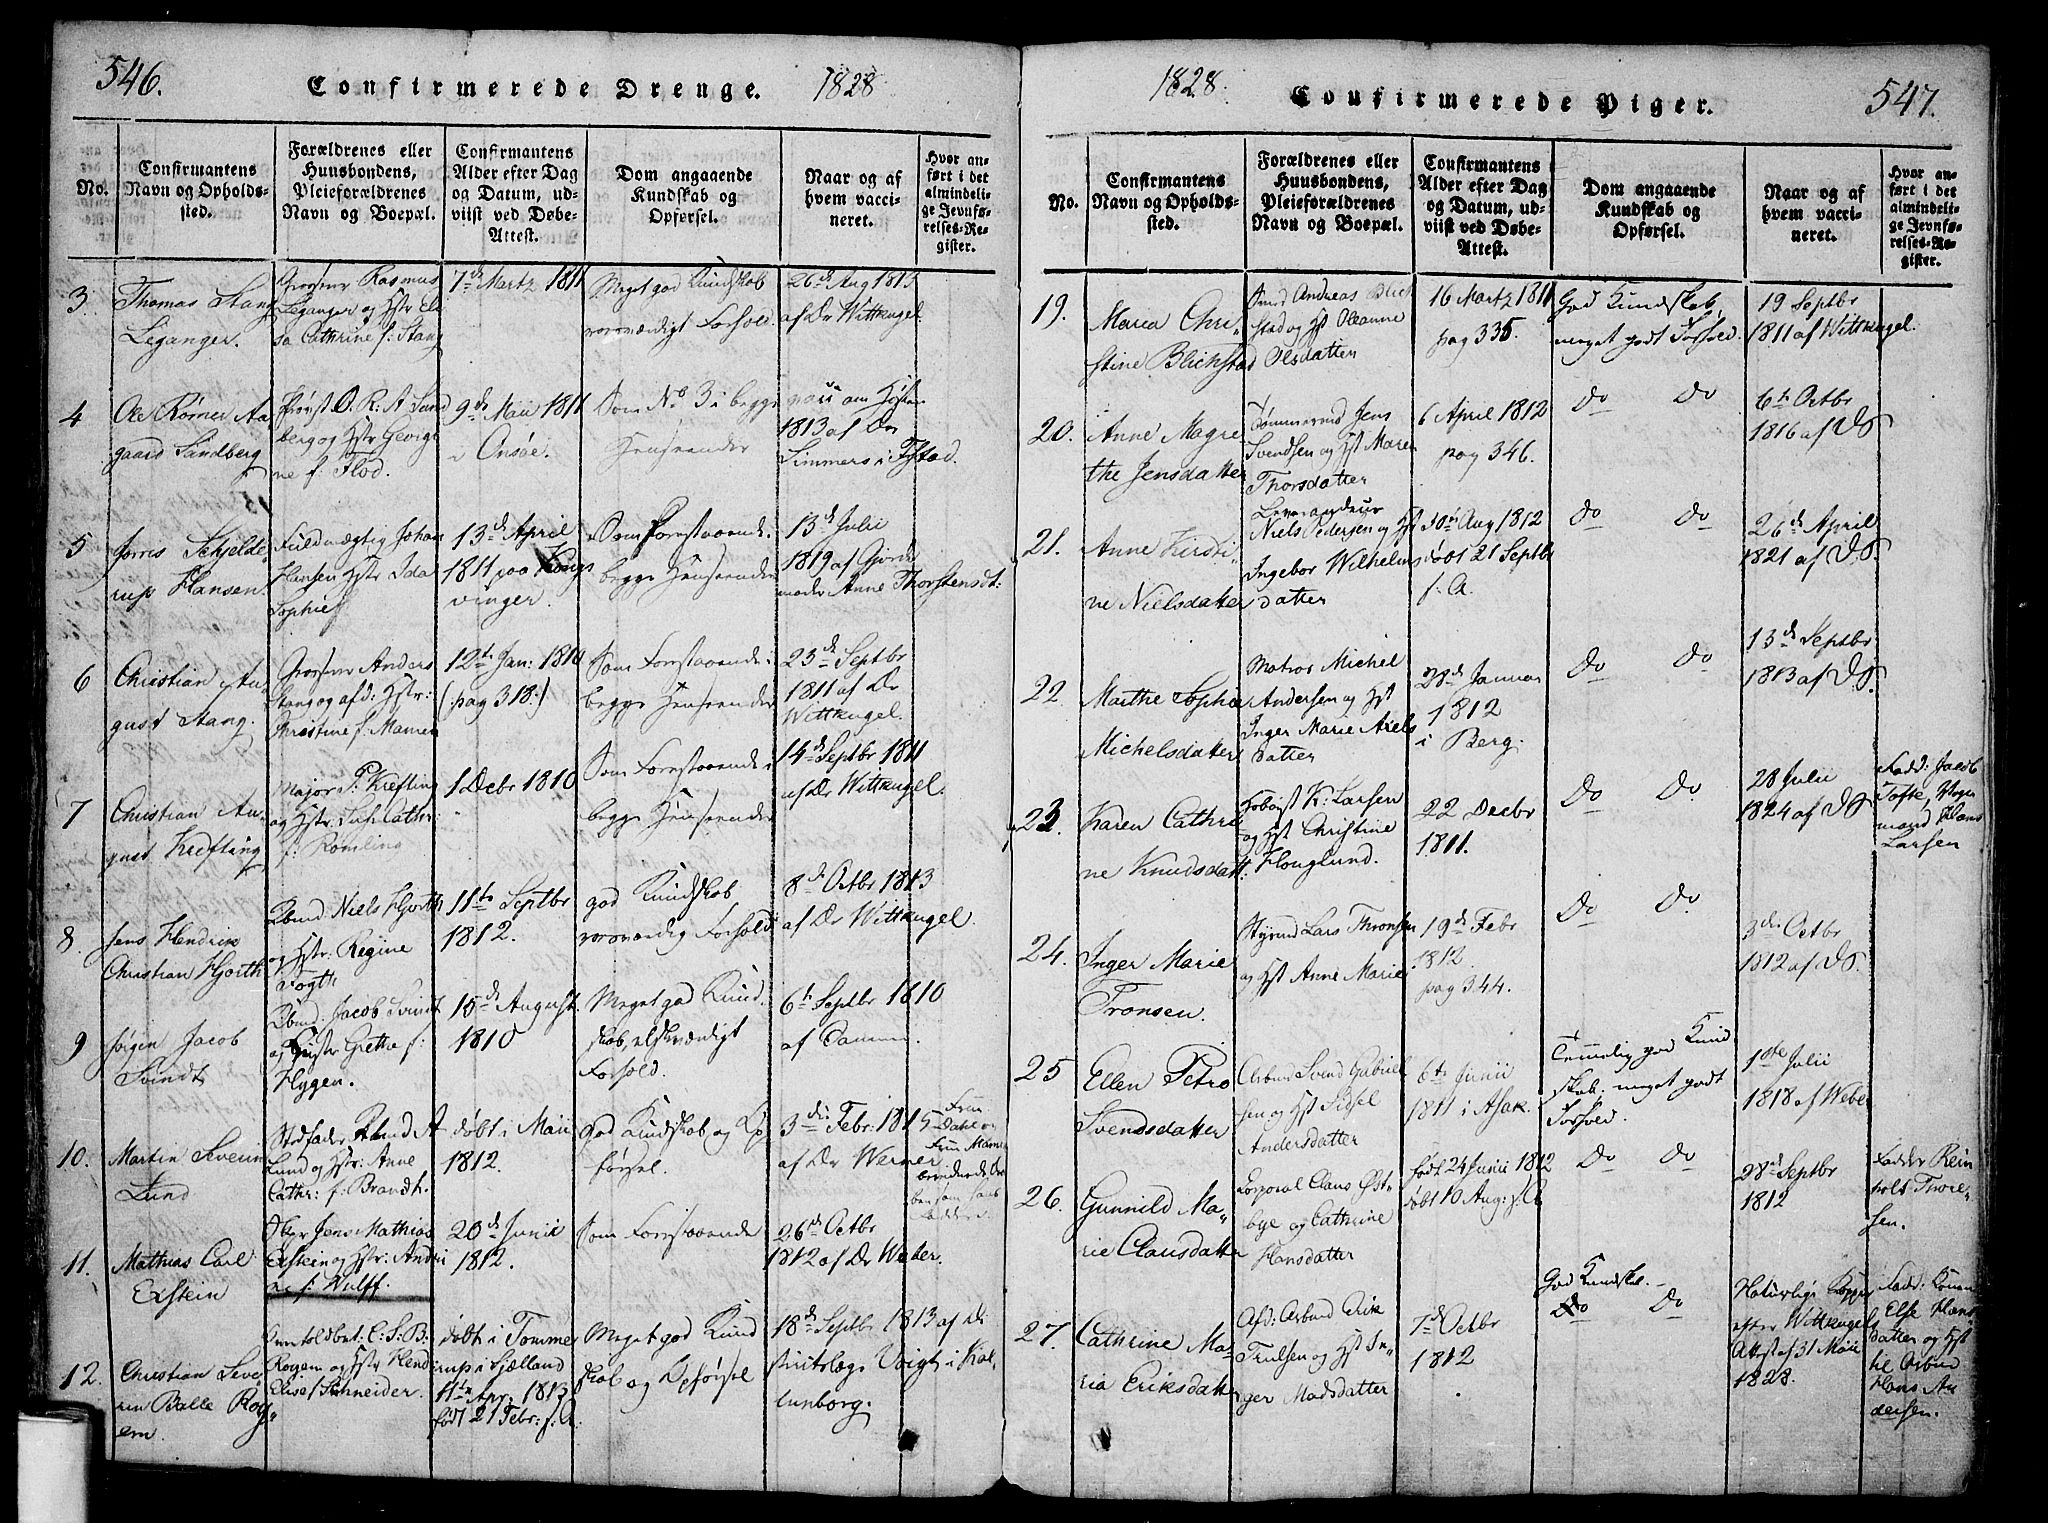 546.
Confirmerede Drenge.
1828
No.
Confirmantens
Navn og Opholds-
sted.
Forældrenes eller
Huusbondens,
Pleieforældrenes
Navn og Boepæl.
Confirmantens
Alder efter Dag
og Datum, ud-
viist ved Døbe-
Attest.
Dom angaaende
Kundskab og
Opførsel.
Naar og af
hvem vacci-
neret.
Hvor an-
ført i det
almindeli-
ge Jevnfø-
relses-Re-
gister.
3
Thomas Stang
Leganger.
Rasmus
Leganger og Hstr
Cathrine f: Stang
7de Martz 1811
Meget god Kundskab
roesværdigt Forhold.
26de Aug 1813
af Dr Wittkugel.
4
Ole Rømer Aa-
gaard Sandberg
Provst O. R. A Sand
berg og Hstr Georgi
ne f. Flod.
9de Maii 1811
i Onsøe.
Som No 3 i begge
Henseender
om Høsten
1813 af Dr
i Fstad.
5
Jørris Schjelde
rup Hansen.
Fuldmægtig Johan
Hansen Hstr Ida
Sophie
13de April
1811 paa Kongs
vinger.
Som Forstaaende i
begge Henseender
13de Julii
1819 af Gjorde
moder Anne Thorstensdt:
6
Christian Au-
gust Stang.
Anders
Stang og afd: Hstr:
Christine f: Mamen
12te Jan: 1810
(pag 318.)
Som Forstaaende i
begge Henseender
23de Septbr
1811 af Dr
Wittkugel.
7
Christian Au-
gust Krefting
Major P. Krefting
og Hstr. Cathr:
f: Rømling
1 Decbr 1810
Som Forstaaende i
begge Henseender
14de Septbr 1811
af Dr Wittkugel.
8.
Jens Hendrik
Christian Hjorth
Niels Hjorth
og Hstr: Regine
Fogth
11te Septbr
1812.
god Kundskab
roesværdig Forhold
8de Octbr 1813
af Dr Wittkugel.
9
Jørgen Jacob
Svindt
Jacob Svindt
og Hustr Grethe f:
Hygen.
15de August
1810
Meget god Kund
skab, elskværdigt
Forhold.
6te Septbr 1810
af
10.
Martin Severin
Lund
Stedfader
Lund og Hstr: Anne
Cathr: f. Brandt.
døbt i Maii
1812.
god Kundskab og Op
førsel.
3die Febr: 1815
af Dr Werner
Frue
Dahl og
Frue
11.
Mathias Carl
Exstein
Jens Mathias
Exstein og Hstr: Andri
ne f: Wulff.
20de Junii
1812.
Som Forstaaende
26de Octbr
1812 af Dr Weber.
12.
Christian Seve-
rin Balle Rog-
em.
C: S: B:
Rogem og Hstr Hend
Elise f Schneider.
døbt i Tomme
rup i Sjælland
11te Apr: 1813
født 21 Febr: s. A.
Meget god Kund
skab og Opførsel
18de Septbr 1813 af Di
strictslæge Voigt i Kal-
lunborg.
1828.
Confirmerede Piger.
547.
No.
Confirmantens
Navn og Opholds-
sted.
Forældrenes eller
Huusbondens,
Pleieforældrenes
Navn og Boepæl.
Confirmantens
Alder efter Dag
og Datum, ud-
viist ved Døbe-
Attest.
Dom angaaende
Kundskab og
Opførsel.
Naar og af
hvem vacci-
neret.
Hvor an-
ført i det
almindeli-
ge Jevnfø-
relses-Re-
gister.
19.
Maria Chri-
stine Blichstad
Andreas Blich
stad og Hst Oleanne
Olsdatter
16 Martz 1811
pag 335.
God Kundskab,
meget godt Forhold.
19 Septbr
1811 af Wittkugel.
20.
Anne Magre
the Jensdatter
Tømmermd Jens
Svendsen og Hst Maren
Thorsdatter
6 April 1812
pag 346.
Do Do
6te Octbr
1816 af Do.
21.
Anne Kirsti-
ne Nielsdatter
Leverandeur
Niels Pedersen og Hst
Ingebor Wilhelms
datter
Aug 1812
døbt 21 Septbr
s. A.
Do Do
26de April
1821 af Do.
22
Marthe Sophie
Michelsdatter
Matros Michel
Andersen og Hst
Inger Marie Axels
datter
28de Januar
1812
i Berg.
Do Do
13de Septbr
1813 af Do.
23.
Karen Cathri
ne Knudsdatt.
Hoboist K: Larsen
og Hst Christine
Houglund.
22 Decbr
1811.
Do Do
28 Julii
1824 af Do.
Fadd: Jacob
Tofte,
mand Hans
Larsen
24.
Inger Marie
Tronsen.
Styrmd Lars Thronsen
og Hst Anne Marie
19de Febr
1812.
pag 344.
Do Do
3die Octbr
1812 af Do.
25
Ellen Petro
Svendsdatter
Arbmd Svend Gabriel
sen og Hst Sidsel
Andersdatter
6te Junii
1811 i Asak.
Temmelig god Kund
skab, meget godt
Forhold.
1ste Julii
1818 af Weber
26.
Gunnild Ma-
rie Clausdatter
Corporal Claus Øst-
bye og Cathrine
Hansdatter
født 24 Junii 1812
døbt 10 Aug: s. A
Do Do
28de Septbr
1812
Fadder Rein
holt Thore-
sen.
27.
Cathrine Ma-
ria Eriksdatter
Afd: Arbmd Erik
Trulsen og Hst In-
ger Madsdatter
7de Octbr
1812
God Kundskb.
Do Do
Naturlige Kopper
efter Wittkugels
Attest af 31 Maii
1828.
Fadr:
Else Hans
datter og Hst
til Arbmd
Hans An
dersen.